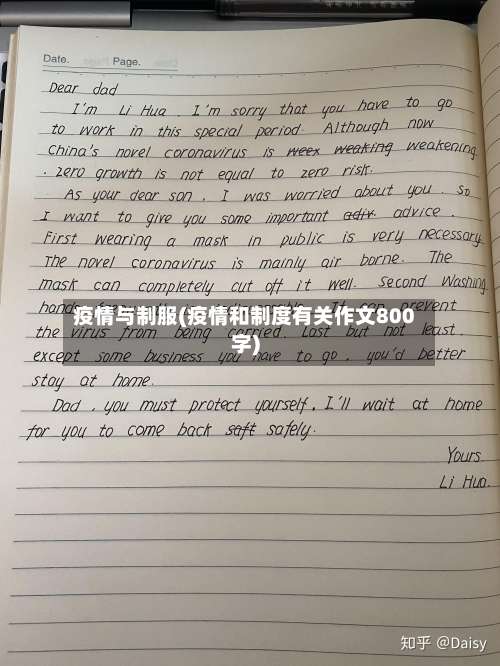 Date.
Page.
Dear dad
I'm Li Hua I'm sorry that you have to go
to work in this special period. Although now
China's novel coronavirus is weex weaking weakening
. zero growth is not equal to zero risk.
As your dear son, I was worried about you. So
I want to give you some important adiv. advice.
First wearing a mask in public is very necessary
The novel coronavirus is mainly air borne. The
mask can completely cut off it well. Second Washing
hands
疫情与制服(疫情和制度有关作文800
prevent
字)
the virus from being carried. Last but not least.
except some business you have to go, you'd better
stay at home.
Dad, you must protect yourself, I'll wait at home
for you to come back saft safely.
Yours.
Li Hua.
知乎 @Daisy